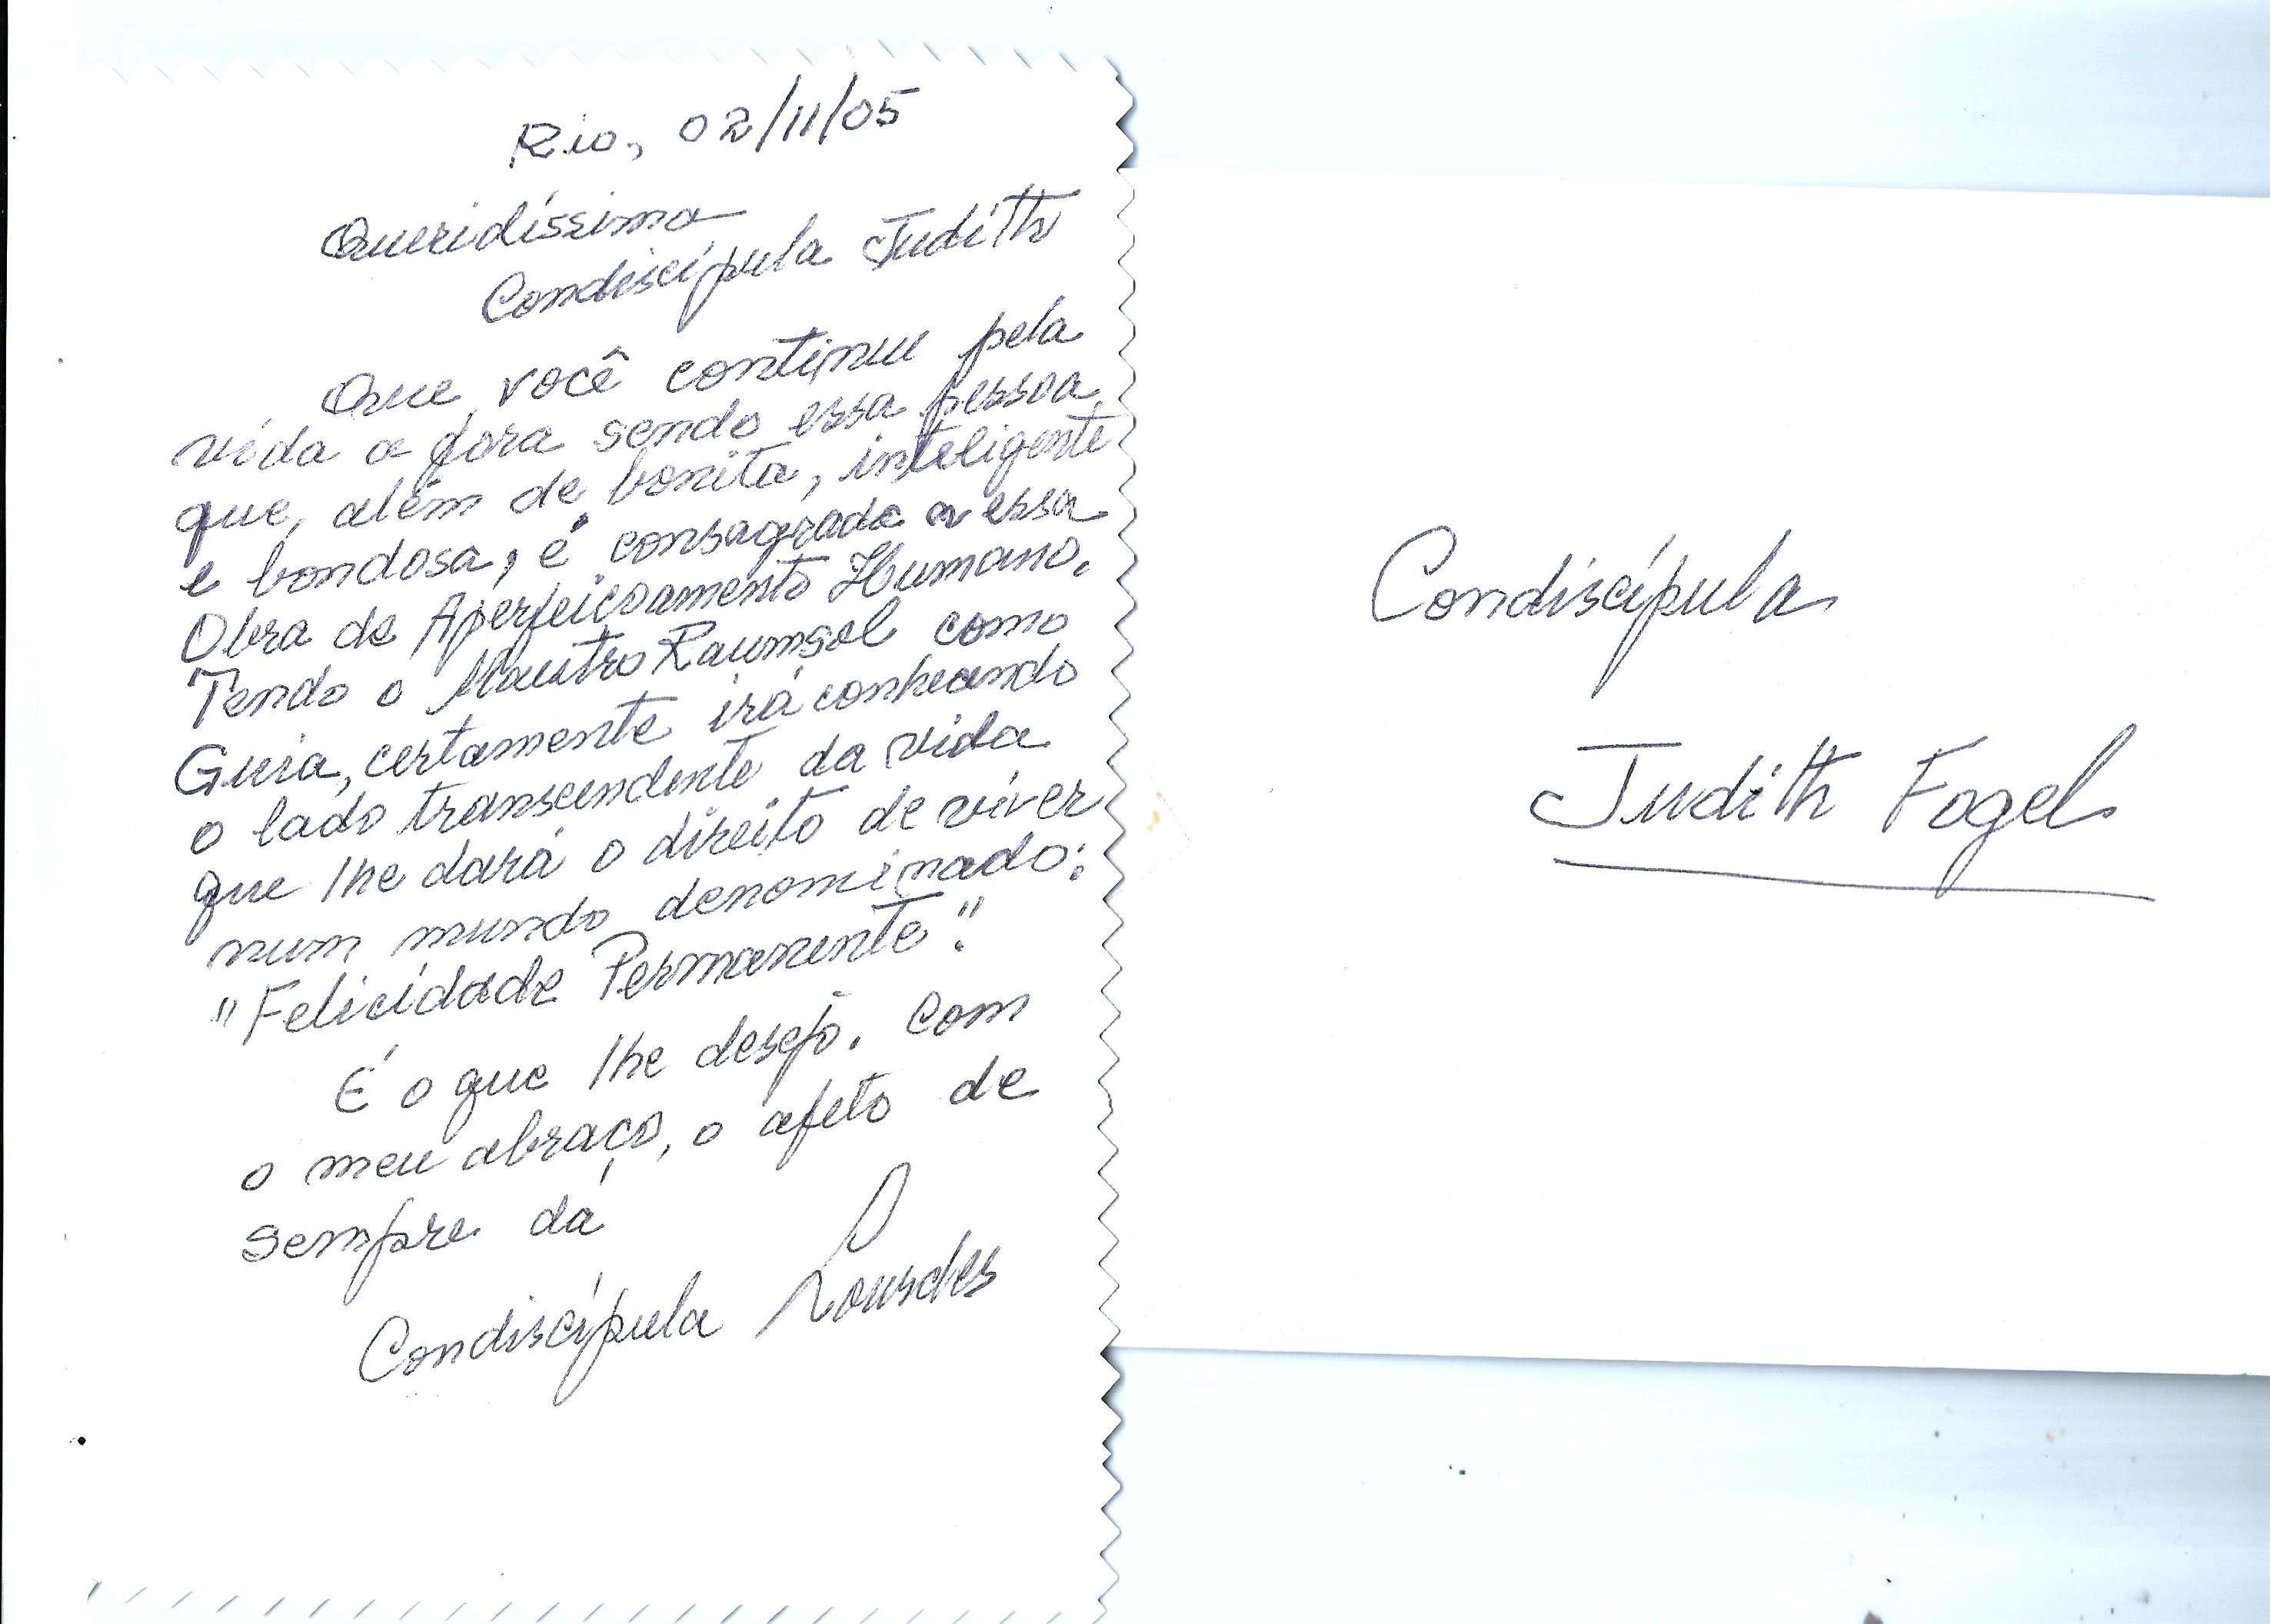 Rio, 02/11/05
Queridíssima
Condiscípula Judith
Que você continue pela
vida a fora sendo essa pessoa
que, além de bonita, inteligente
e bondosa, é consagrada a essa
Obra de Aperfeiçoamento Humano.
Tendo o Maestro Raumsol como
Guia, certamente irá conhecendo
o lado transcendente da vida
que lhe dará o direito de viver
num mundo denominado:
"Felicidade Permanente".
É o que lhe desejo. Com
o meu abraço, o afeto de
sempre da
Condiscípula Lourdes
Condiscípula
Judith Fogel